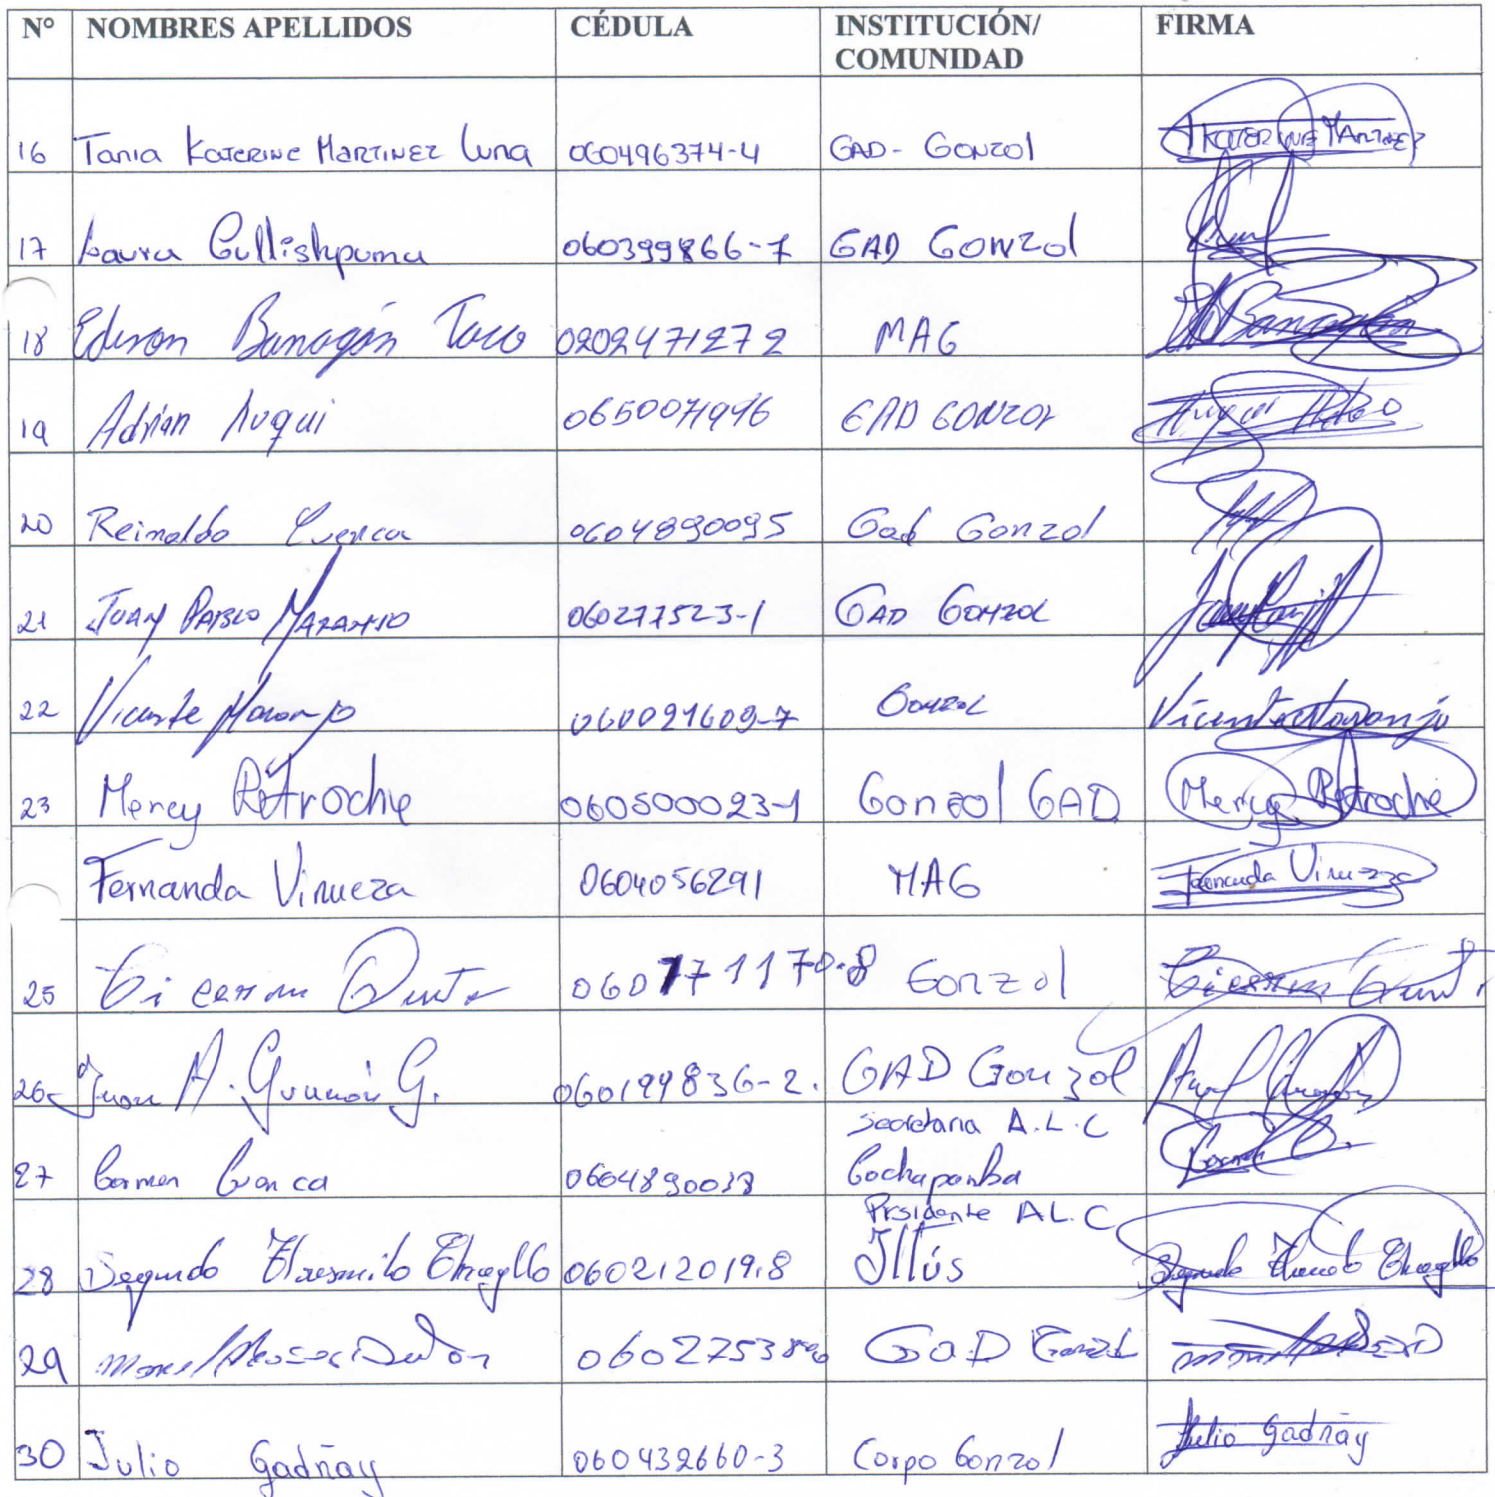 N° NOMBRES APELLIDOS CÉDULA INSTITUCIÓN/ COMUNIDAD FIRMA
16 Tania Katerine Martinez Luna 060496374-4 GAD- Gonzol Katerine Martinez
17 Laura Gullishpuma 060399866-7 GAD Gonzol
18 Edison Banagán Taco 0202471272 MAG
19 Adrian Auqui GAD Gonzol
20 Reinaldo Cuenca 0604890095 Gad Gonzol
21 Juan Pablo Naranjo 060277523-1 GAD Gonzol
22 Vicente Naranjo 060091609-7 Gonzol Vicente Naranjo
23 Mercy Petroche 060500023-1 Gonzol GAD Mercy Petroche
Fernanda Vinueza 0604056291 MAG Fernanda Vinueza
25 060771170-8 Gonzol
26 Juan A. Guamán G. 060199836-2. GAD Gonzol
27 Carmen Cuenca Secretaria A.L.C Cochapamba
28 Segundo 060212019.8 Prsidente A.L.C Illús Segundo
29 GAD Gonzol
30 Julio Gadñay 060432660-3 Corpo Gonzol Julio Gadñay